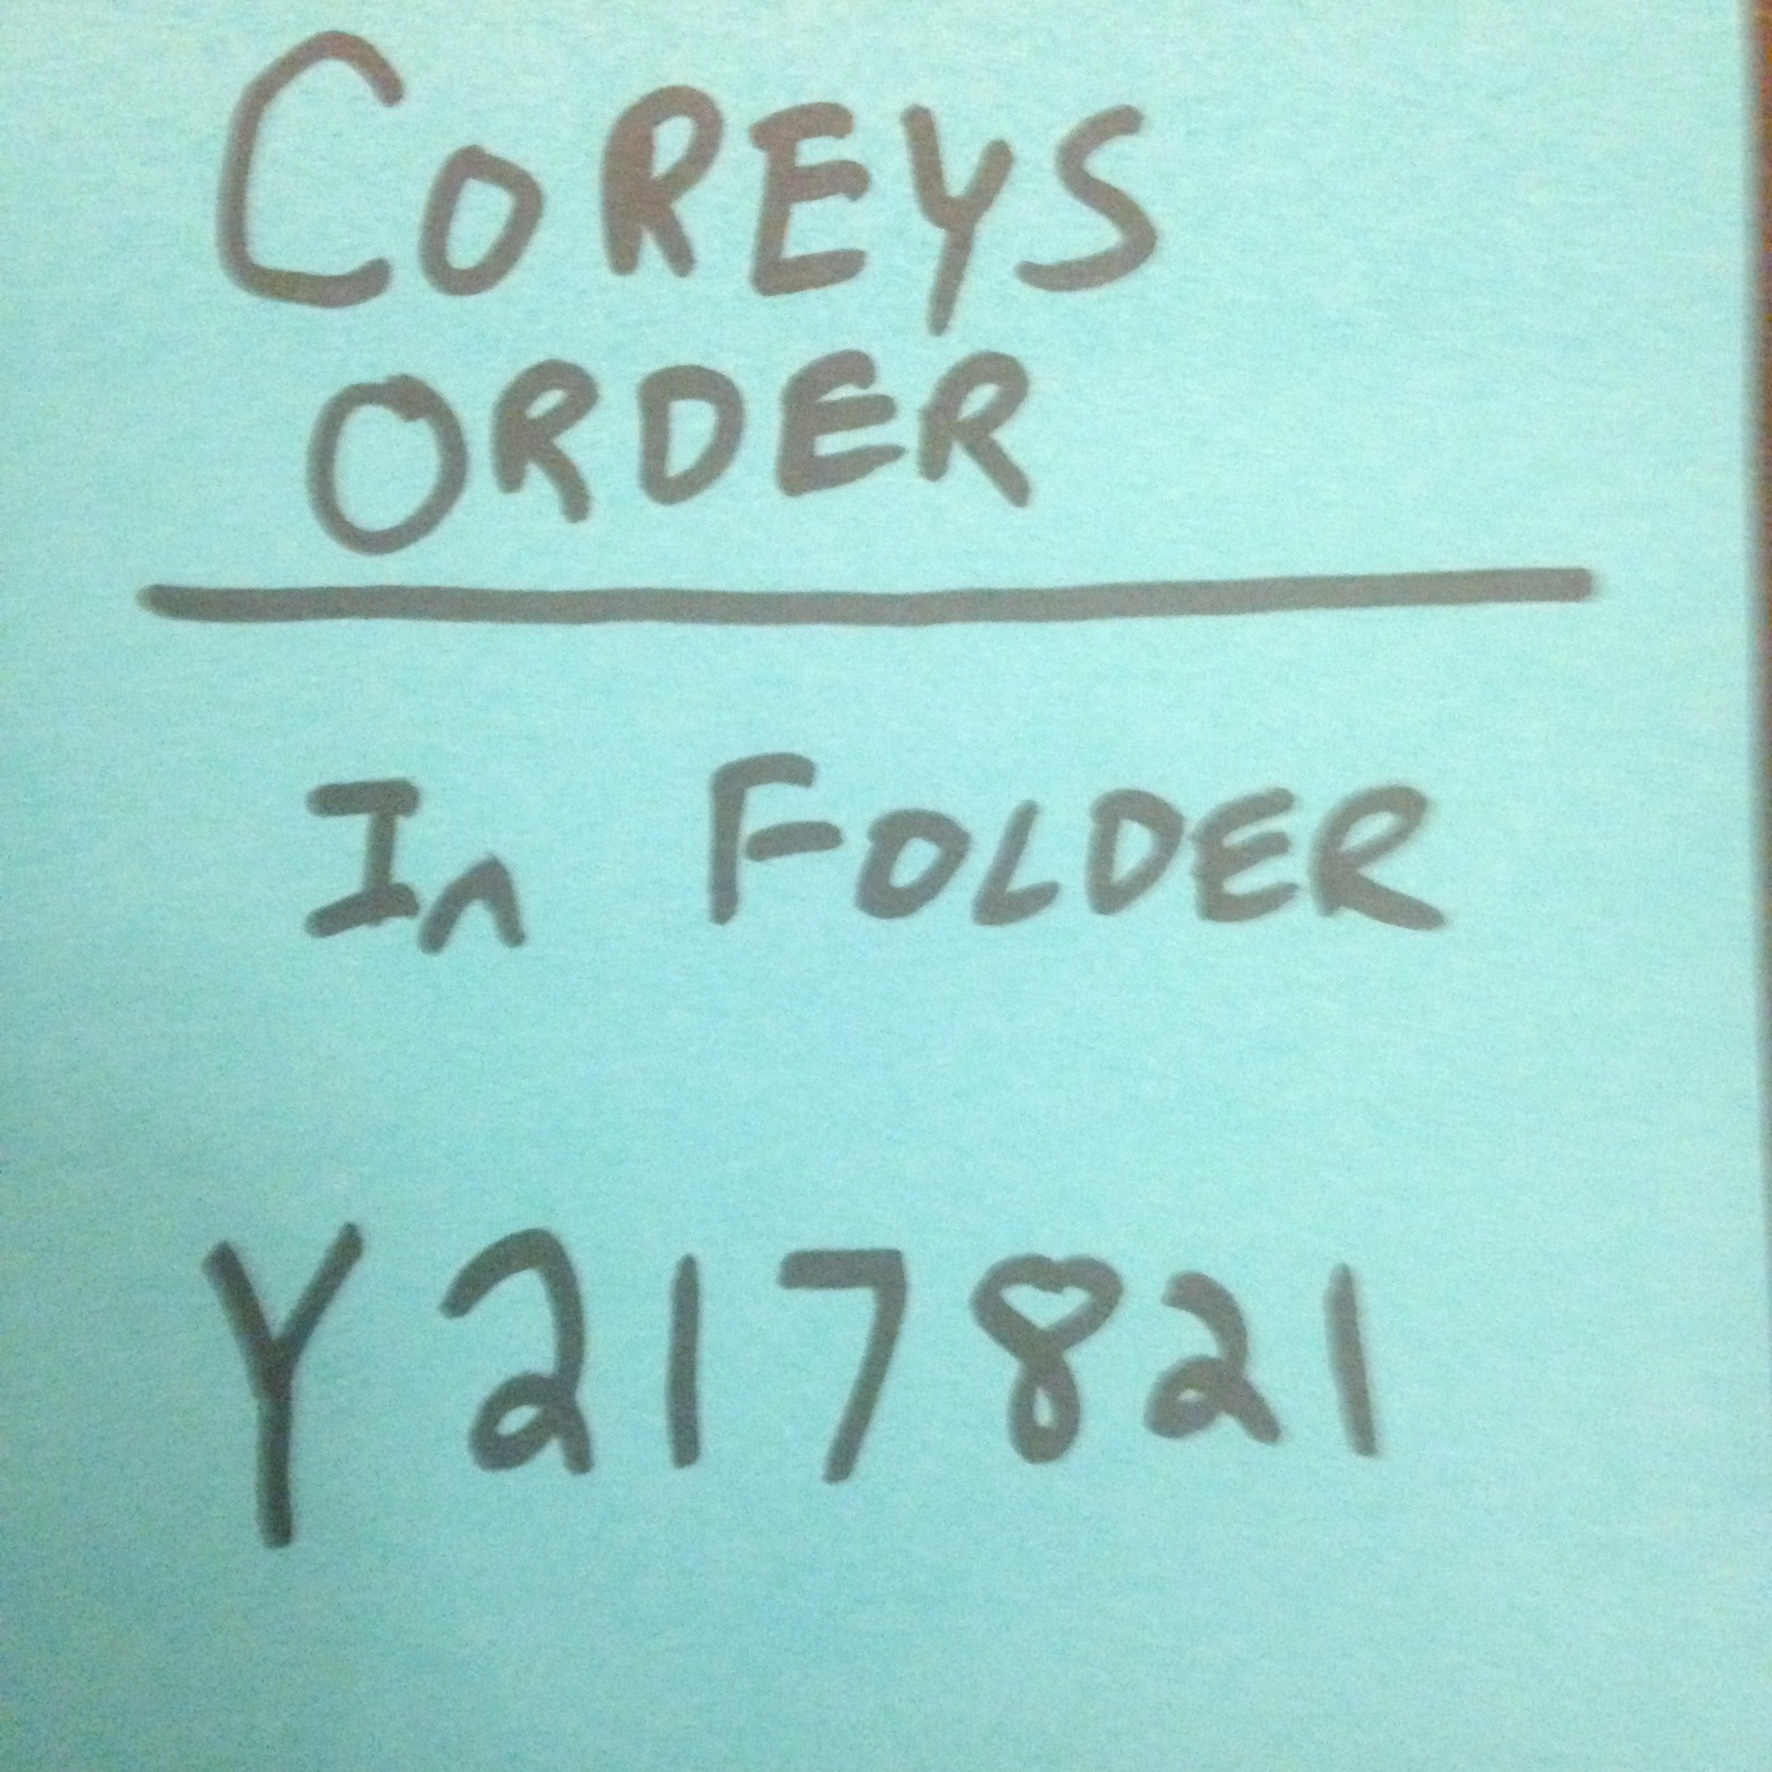 COREYS
ORDER
In FOLDER
Y217821